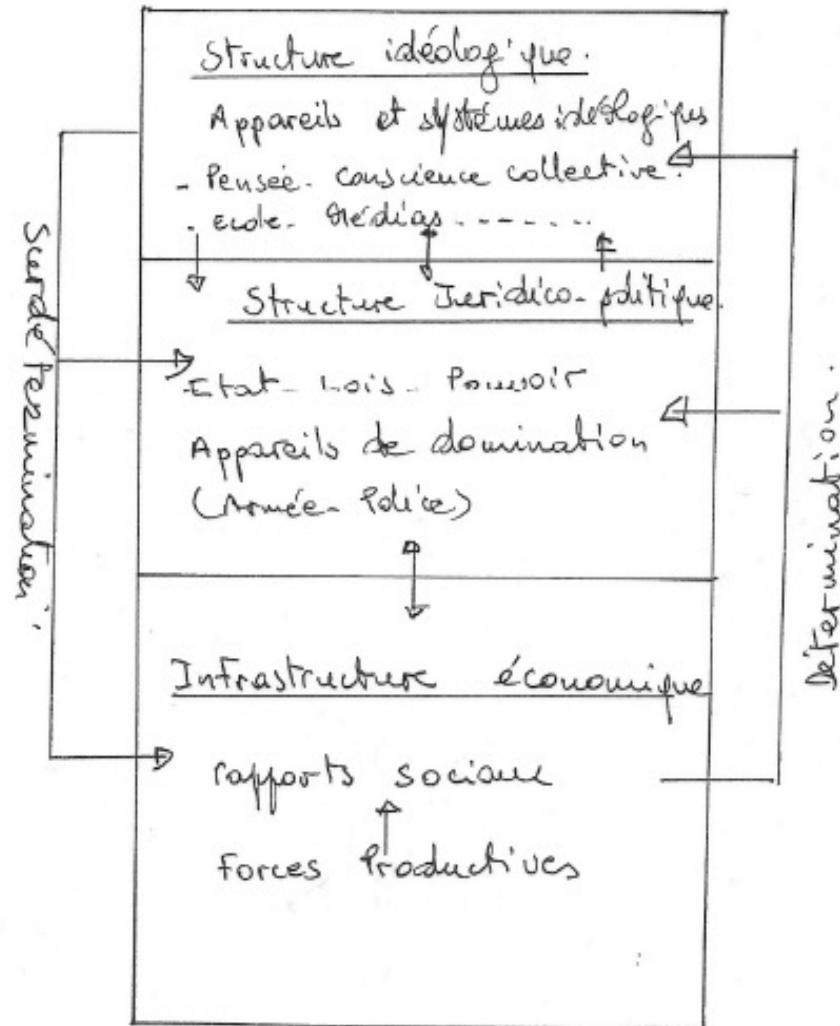 Structure idéologique.
Appareils et systémes idéologiques
- Pensée - conscience collective.
- Ecole - Médias - - - - - - -
Structure Juridico-politique.
- Etat - Lois - Pouvoir
Appareils de domination
(Armée - Police)
Infrastructure économique
rapports sociaux
Forces Productives
Surdétermination.
Détermination.